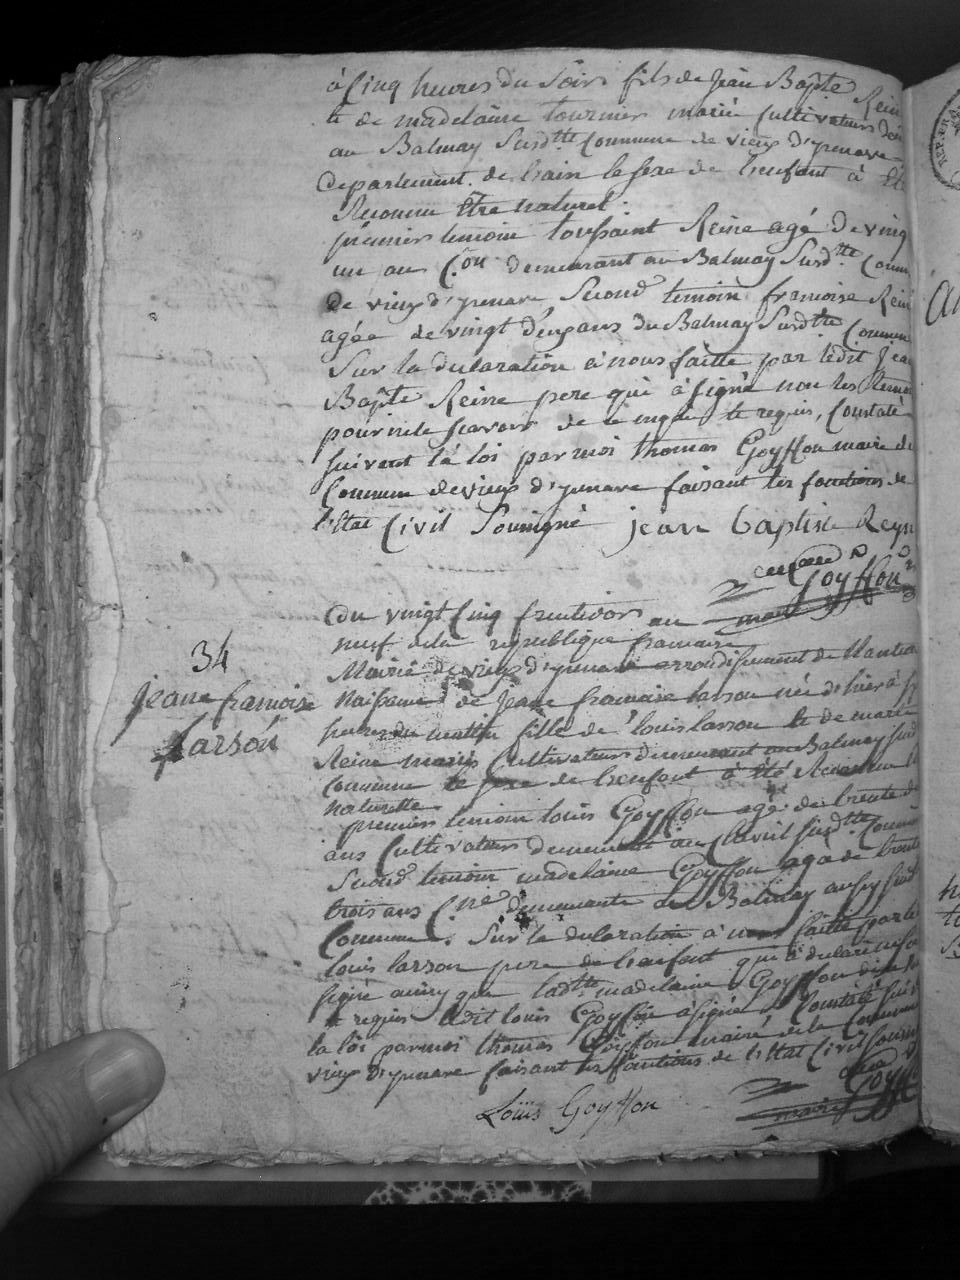 à Cinq heures du Soir fils de Jean Bapte Rein
et de madelaine tournier marié Cultivateurs dem
au Balmay Susdtte Commune de vieux d'ysenave
departement de Lain le sexe de L'enfant à été
Reconnu Être naturel.
premier temoin toussaint Reine agé De vingt
un an C.on demeurant au Balmay Susdtte Comm
de vieux d'ysenave Second temoin francoise Rein
agée de vingt deux ans du Balmay Susdtte Commun
Sur la declaration à nous faitte par ledit Jea
Bapte Reine pere qui à signé non les temoi
pour ne le scavoir de ce enquis et requis, Constaté
suivent la loi par moi thomas Goyffon maire de
Commun de vieux d'ysenave faisant les fonctions de
l'Etat Civil Soussigné jean baptiste Reyn
Goyffon
maire
34
Jeane francoise
Larson
Du vingt Cinq fructidor an
neuf de la republique francaise
Mairie de vieux d'ysenave arrondissement de Nantua
Naissance de Jeane francaise Larson née d'hier à
heures du mattin fille de Louis Larson et de marie
Reine mariés Cultivateurs demeurant au Balmay susd
Commune le sexe de L'enfant à été Reconnu
naturelle
premier temoin Louis Goyffon agé de trente d
ans Cultivateur demeurant au susdtte Commun
Second temoin madelaine Goyffon agé de trente
trois ans C.ne demeurante Balmay aussy susd
Commune. Sur la declaration à nous faitte par le
Louis Larson pere de L'enfant qui à declaré
signé ainsy que ladtte madelaine Goyffon
requis ledit Louis Goyffon à signé Constaté
la loi par moi thomas Goyffon maire de la Commun
vieux D'ysenave faisant les fonctions de L'Etat Civil Sousi
Goyff
Louis Goyffon
maire